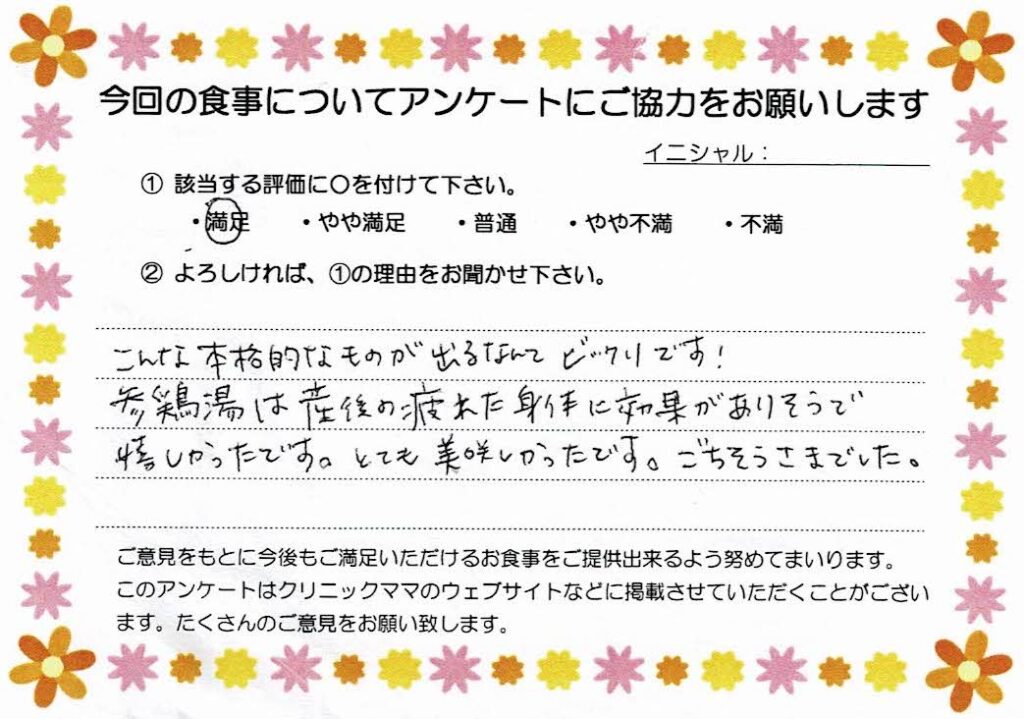 今回の食事についてアンケートにご協力をお願いします
イニシャル：
① 該当する評価に〇を付けて下さい。
・満足 ・やや満足 ・普通 ・やや不満 ・不満
② よろしければ、①の理由をお聞かせ下さい。
こんな本格的なものが出るなんてビックリです！
参鶏湯は産後の疲れた身体に効果がありそうで
嬉しかったです。とても美味しかったです。ごちそうさまでした。
ご意見をもとに今後もご満足いただけるお食事をご提供出来るよう努めてまいります。
このアンケートはクリニックママのウェブサイトなどに掲載させていただくことがござい
ます。たくさんのご意見をお願い致します。